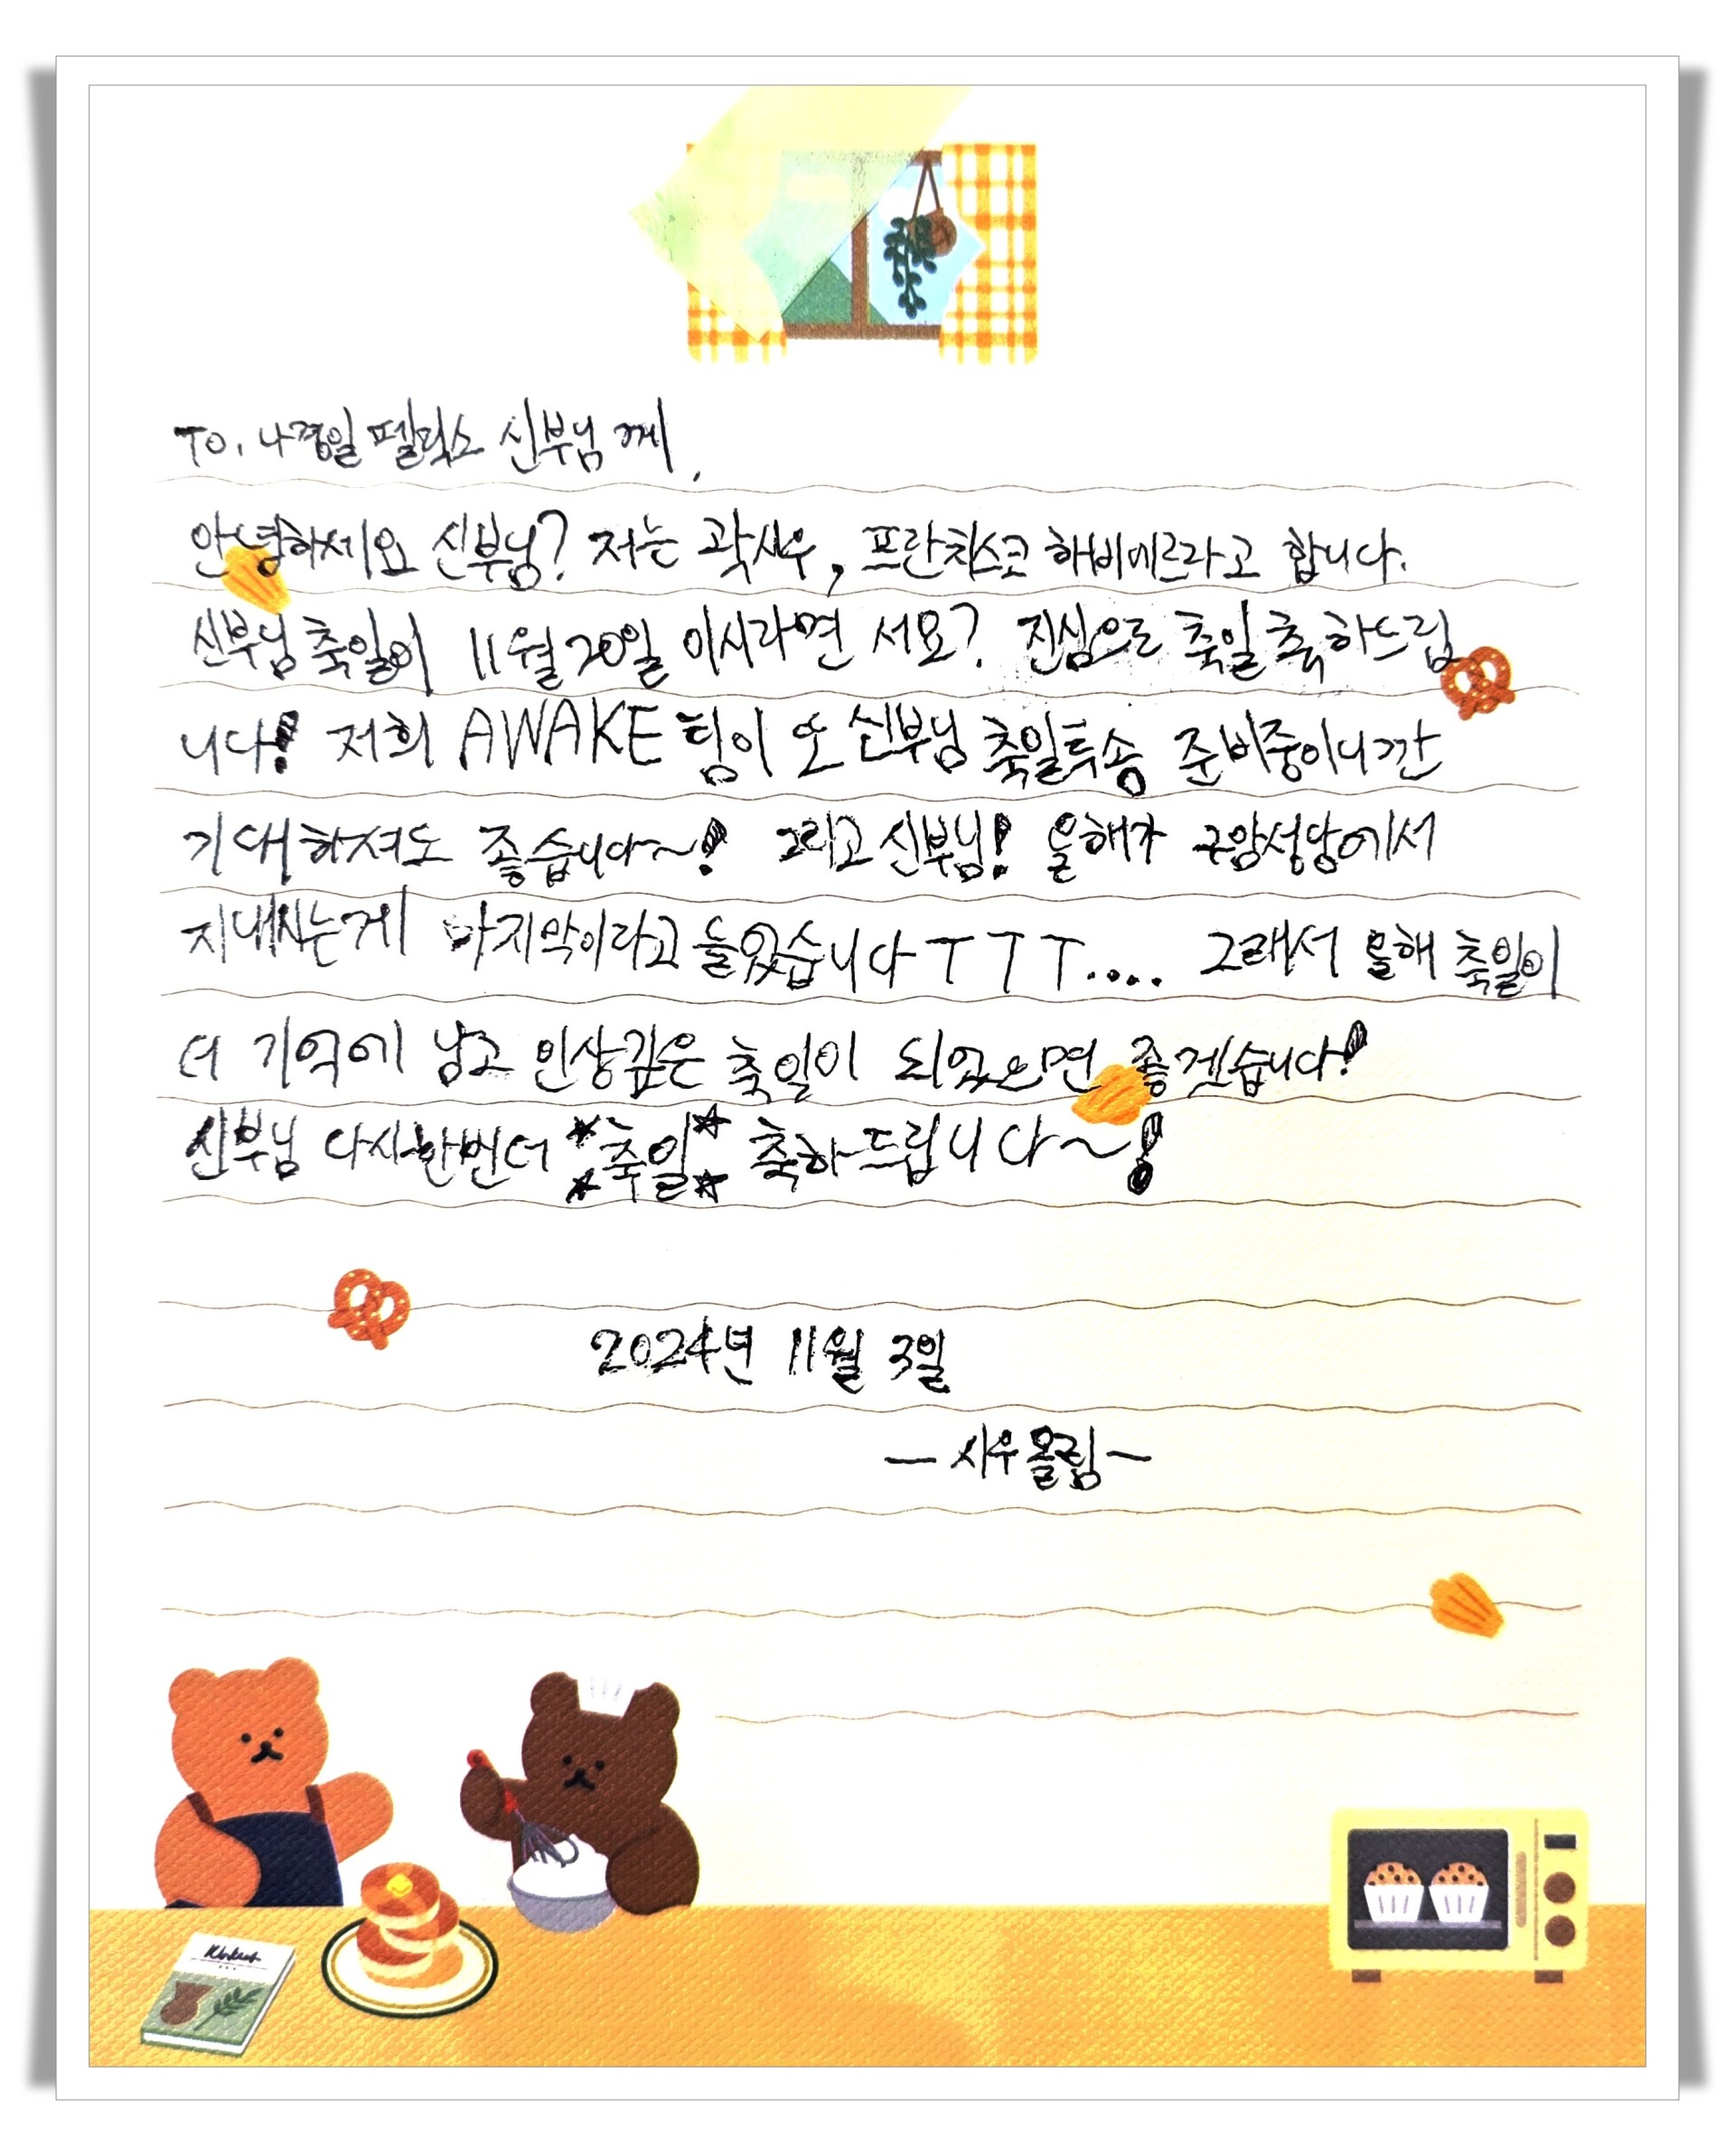 To. 나경일 펠릭스 신부님께,
안녕하세요 신부님? 저는 곽시우, 프란치스코 하비에르라고 합니다.
신부님 축일이 11월 20일 이시라면 서요? 진심으로 축일 축하드립
니다! 저희 AWAKE 팀이 또 신부님 축일투송 준비중이니깐
기대하셔도 좋습니다~! 그리고 신부님! 올해가 구암성당에서
지내시는게 마지막이라고 들었습니다 TTT.... 그래서 올해 축일이
더 기억에 남고 인상깊은 축일이 되었으면 좋겟습니다!
신부님 다시한번더 축일 축하드립니다~!
2024년 11월 3일
- 시우올림 -